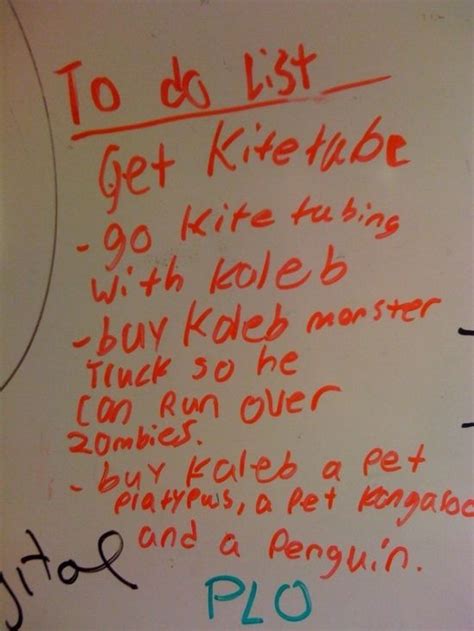 To do List
Get Kitetube
- go kite tubing
with Koleb
- buy Kaleb monster
Truck so he
can Run over
zombies.
- buy Kaleb a pet
platypws, a pet kangaroo
and a Penguin.
PLO